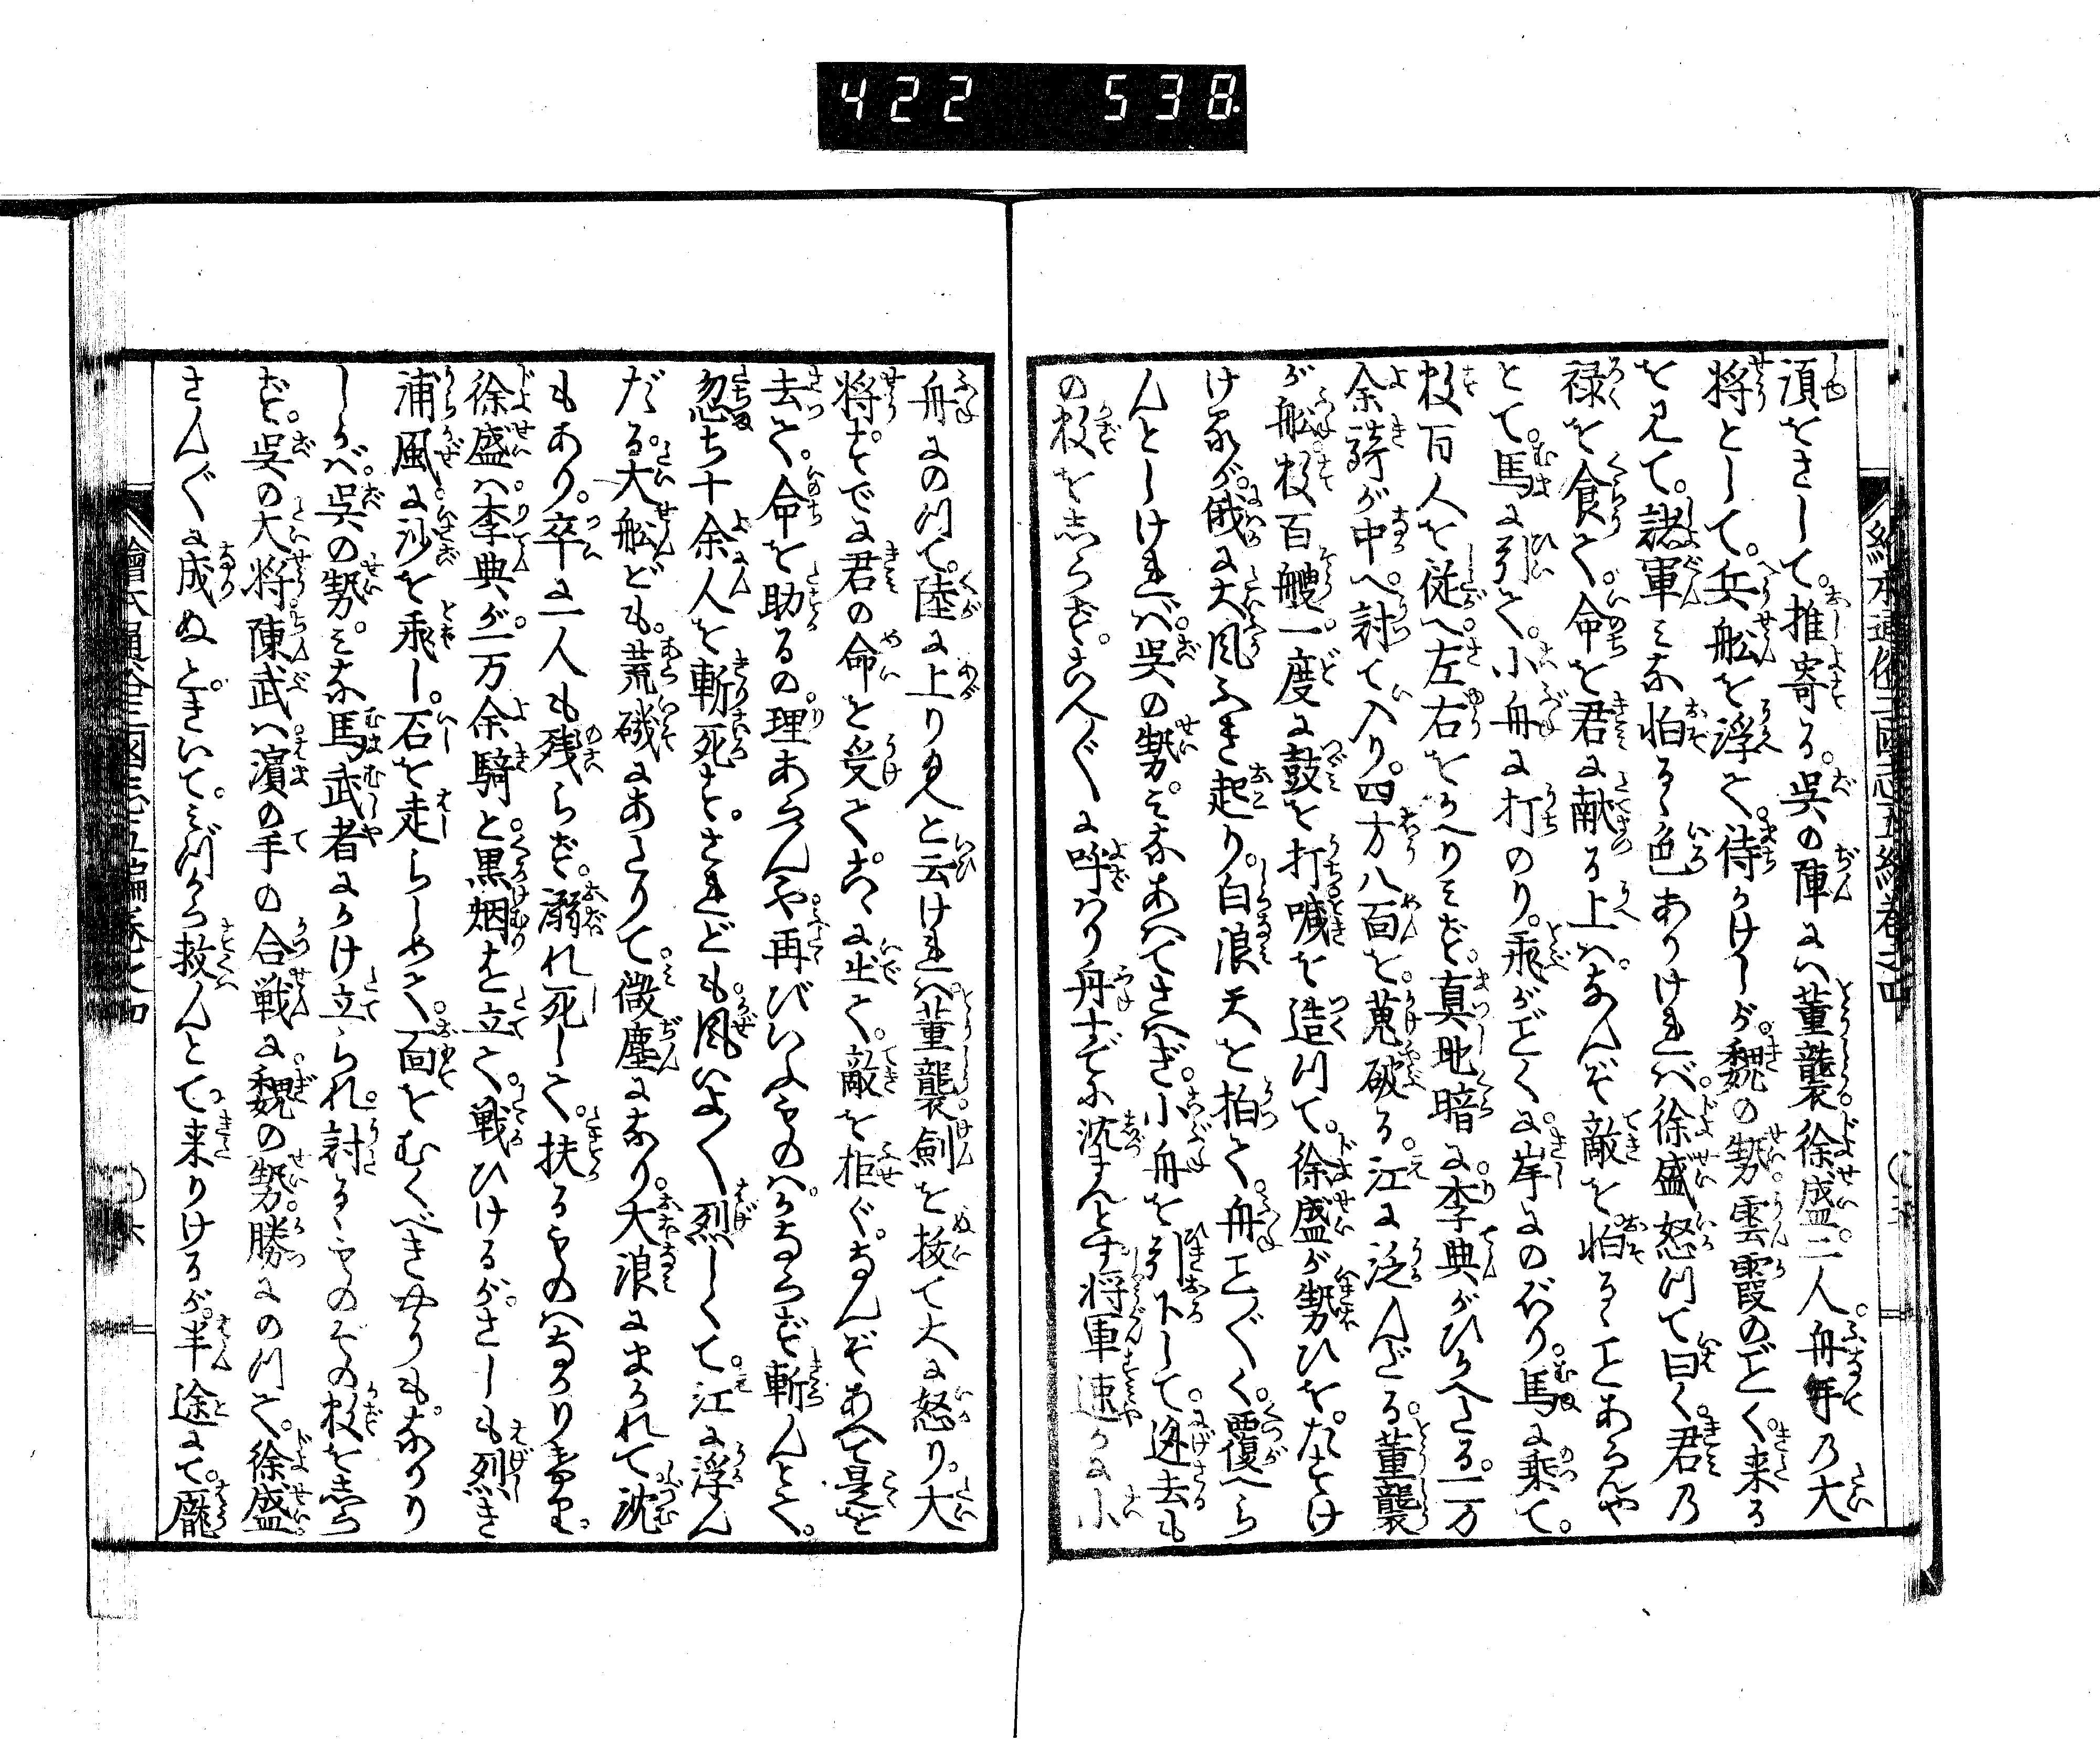 422 538
須をさして。推寄る。呉の陣には董襲徐盛。二人。舟手乃大
将として。兵舩を浮て。待かけしが。魏の勢。雲霞のごとく。来る
を見て。諸軍みな怕るゝ色ありければ。徐盛怒つて曰く。君乃
禄を食て。命を君に献る上は。なんぞ敵を怕るゝことあらんや
とて。馬に引て。小舟に打のり。飛がごとくに。岸にのぼり。馬に乗て。
数百人を従へ。左右をかへりみず。真地暗に李典がひかへたる。一万
余騎が中へ討て入り。四方八面を。蒐破る。江に泛んだる。董襲
が舩。数百艘。一度に鼓を打。喊を造つて。徐盛が勢ひを。たすけ
けるが。俄に大風ふき起り。白浪天を拍て。舟こと〴〵く。覆へら
んとしければ。呉の勢。みなあはてさはぎ。小舟を引下して。迯去も
の数をしらず。こゑ〴〵に呼はり舟すでに沈まんとす。将軍速かに小
舟にのつて。陸に上り玉へと云ければ。董襲。剣を抜て大に怒り。大
将すでに君の命を受て。こゝに出て。敵を拒ぐ。なんぞあへて是を
去て。命を助るの理あらんや。再びいふものは。かならず斬んとて。
忽ち十余人を斬死す。されども。風いよ〳〵烈しくて。江に浮ん
だる。大舩ども。荒磯にあたりて。微塵になり。大浪にまかれて沈
もあり。卒に一人も残らず。溺れ死して。扶るものはなかりけり。
徐盛は。李典が。一万余騎と。黒烟を立て。戦ひけるが。さしも烈き
浦風に。沙を飛し。石を走らしめて。面をむくべきやうもなかり
しかば。呉の勢。みな馬武者にかけ立られ。討るゝものその数をしら
ず。呉の大将。陳武は。濱の手の合戦に。魏の勢。勝にのつて。徐盛
さん〴〵に成ぬと。きいて。みづから救んとて。来りけるが。半途にて。龐